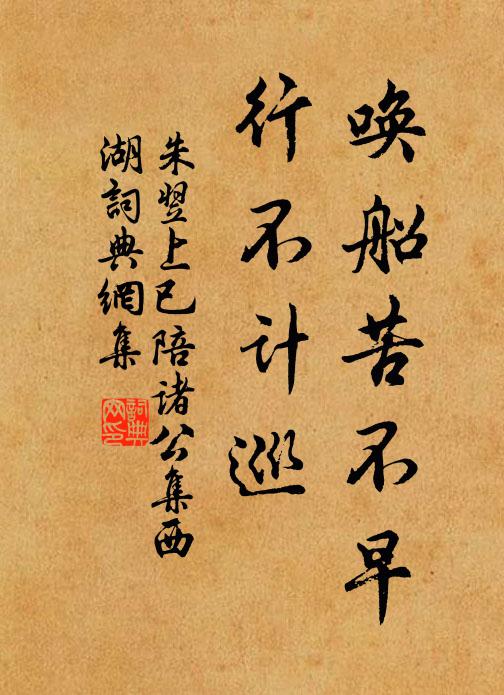 唤船苦不早
行不计巡
朱翌上巳陪诸公集西
湖詞典網集
詞典
网印